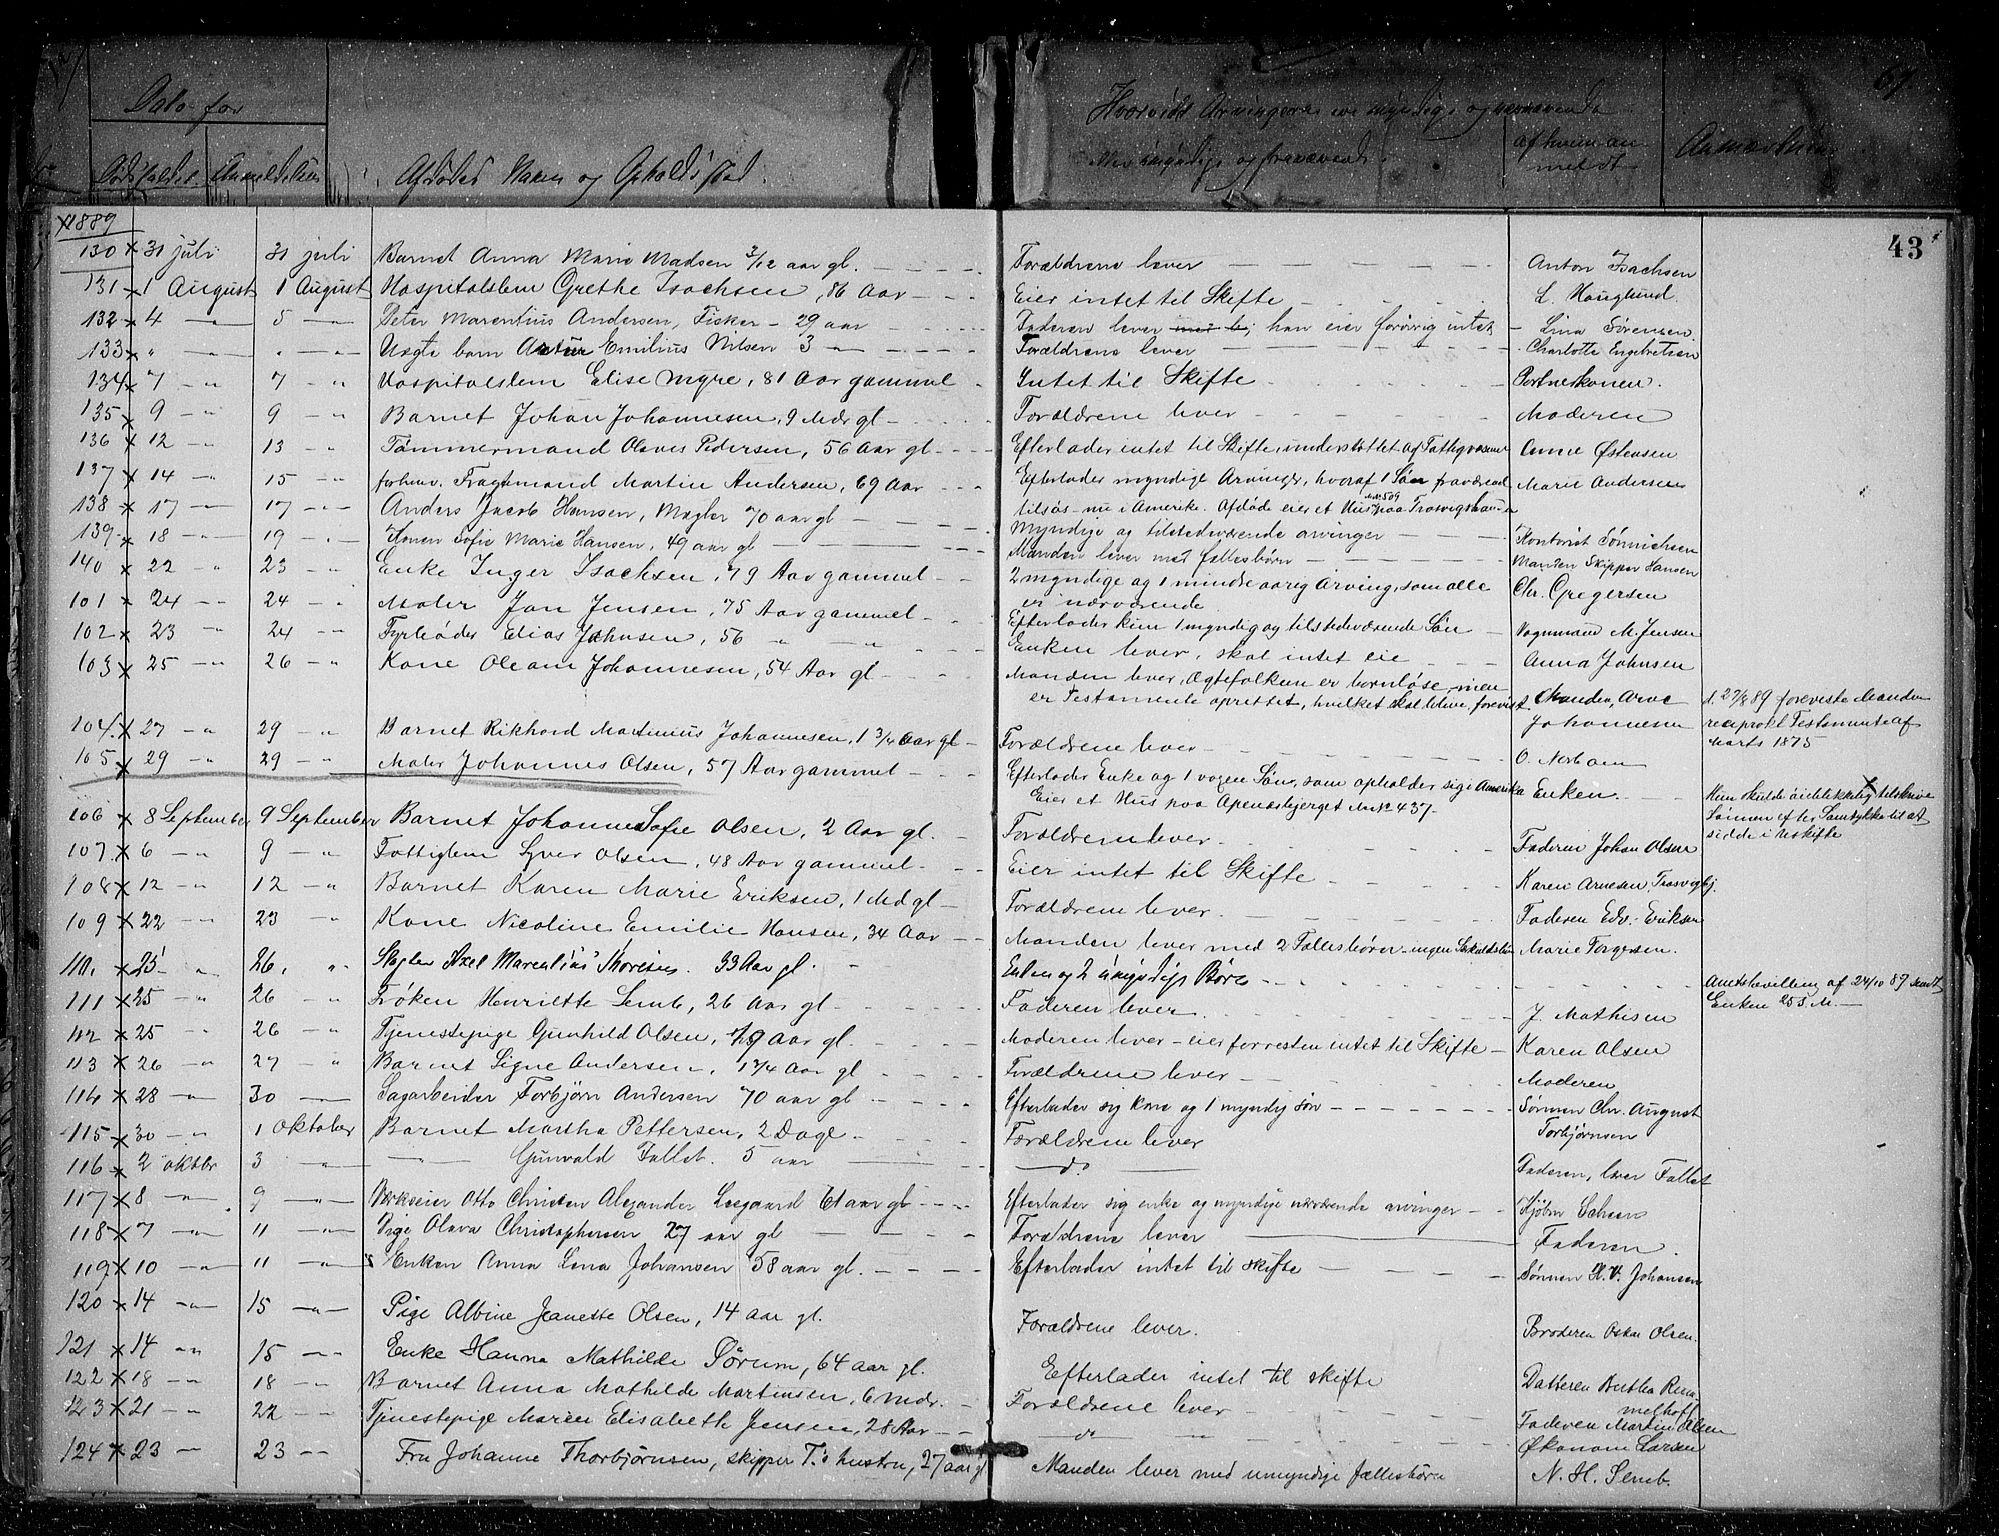 Dato for
Hvorvidt Arvingerne ere myndige og nærværende
Dødsfaldet. Anmeldelsen
Afdødes Navn og Opholdssted.
eller umyndige og fraværende.
af hvem anmeldt
43
1889
130 x 31 juli 31 juli Barnet Anna Marie Madsen 3/12 aar gl. Forældrene lever Anton Isachsen
131 x 1 August 1 August Hospitalslem Grethe Isachsen, 86 Aar Eier intet til Skifte L. Hauglund.
132 x 4 5 Peter Marentius Andersen, Fisker - 29 aar Faderen lever han eier forøvrig intet Lina Sørensen
133 x " " Uegte barn Artur Emilius Nilsen 3 Forældrene lever Charlotte Engebretsen
134 x 7 7 Hospitalslem Elise Myre, 81 Aar gammel Intet til Skifte Portnerkonen.
135 x 9 9 Barnet Johan Johannesen, 9 Mdr gl Forældrene lever Moderen
136 x 12 13 Tømmermand Olaves Pedersen, 56 Aar gl Efterlader intet til Skifte, understøttet af Fattigvæsenet Anne Østensen
137 x 14 15 forhenv. Fragtmand Martin Andersen, 69 Aar Efterlader myndige Arvinger, hvoraf 1 Søn fraværend Marie Andersen
tilsøs - nu i Amerika. Afdøde eier et Hus No 509 paa Trosvigs
138 x 17 17 Anders Jacob Hansen, Mægler 70 aar gl Myndige og tilstedeværende arvinger Kontorist Sønnichsen
139 x 18 19 Konen Sofie Marie Hansen, 49 aar gl Manden lever med fællesbørn Manden Skipper Hansen
140 x 22 23 Enke Inger Isachsen, 79 Aar gammel 2 myndige og 1 mindreaarig Arving, som alle Chr. Gregersen
er nærværende
101 x 24 24 Maler Jan Jensen, 75 Aar gammel Efterlader kun 1 myndig og tilstedeværende Søn Vognmand M. Jensen
102 x 23 24 Fyrbøder Elias Johnsen, 56 " Enken lever, skal intet eie Anna Johnsen
103 x 25 26 Kone Oleane Johannesen, 54 Aar gl Manden lever, Ægtefolkene er barnløse, men Manden, Arve
er Testamente oprettet, hvilket skal blive forevist Johannesen
d. 27/8 89 foreviste Manden
reciprokt Testamente af
Marts 1875
104 x 27 29 Barnet Rikhard Martinius Johannesen, 1 3/4 Aar gl Forældrene lever
105 x 29 29 Maler Johannes Olsen, 57 Aar gammel Efterlader Enke og 1 voxen Søn, som opholder sig i Amerika Enken.
Eier et Hus paa Apenæsbjerget No 437.
Hun skulde tilskrive
Sønnen efter Samtykke til at
sidde i Uskifte
106 x 8 September 9 September Barnet Johanne Sofie Olsen, 2 Aar gl. Forældrene lever. Faderen Johan Olsen
107 x 6 9 Fattiglem Syver Olsen, 48 Aar gammel Eier intet til Skifte Karen Arnesen, Trosvigbj.
108 x 12 12 Barnet Karen Marie Eriksen, 1 Md gl Forældrene lever. Faderen Edv. Eriksen
109 x 22 23 Kone Nicoline Emilie Hansen, 34 Aar Manden lever med 2 Fællesbørn - ingen Marie Torgersen.
110 x 25 26 Axel Marentius Thoresen. 33 Aar gl. Enken og 2 umyndige Børn
Amtsbevilling af 24/10 89 sendt
Enken 25 S M.
111 x 25 26 Frøken Henriette Semb, 26 Aar gl Faderen lever J. Mathisen
112 x 25 26 Tjenestepige Gunhild Olsen, 19 Aar gl. Moderen lever - eier forresten intet til Skifte Karen Olsen
113 x 26 27 Barnet Signe Andersen, 1 3/4 Aar gl Forældrene lever Moderen
114 x 28 30 Sagarbeider Torbjørn Andersen 70 aar gl Efterlader sig kone og 1 myndig søn Sønnen Chr. August
Torbjørnsen
115 x 30 1 Oktober Barnet Martha Pettersen, 2 Dage Forældrene lever
116 x 2 oktbr 3 Gunvald Fallet. 5 aar do Faderen, Iver Fallet
117 x 8 9 Værkseier Otto Christen Alexander Leegaard 61 aar gl Efterlader sig enke og myndige nærværende arvinger
118 x 7 11 Pige Olava Christophersen 27 aar gl Forældrene lever Faderen.
119 x 10 11 Enken Anna Lena Johansen 58 aar gl. Efterlader intet til skifte Sønnen H. V. Johansen
120 x 14 15 Pige Albine Jeanette Olsen, 14 aar gl. Forældrene lever. Broderen Oskar Olsen.
121 x 14 15 Enke Hanna Mathilde Sørum, 64 aar gl. Efterlader intet til skifte Datteren Bertha
122 x 18 18 Barnet Anna Mathilde Martinsen, 6 mdr. Forældrene lever Faderen Martin Olsen
123 x 21 22 Tjenestepige Maren Elisabeth Jensen, 28 Aar do Økonom Larsen
124 x 23 23 Fru Johanne Thorbjørnsen, skipper T.'s hustru, 27 aar gl Manden lever med umyndige fællesbørn N. H. Semb.